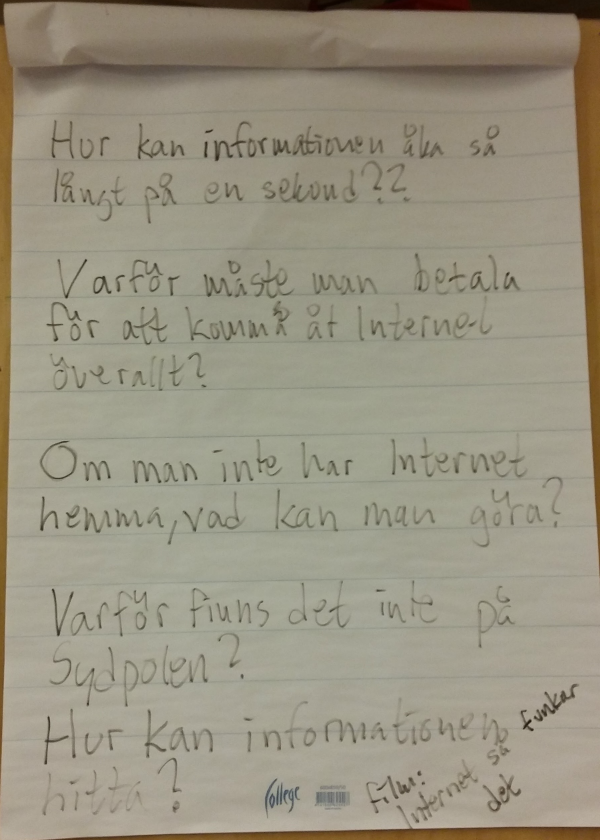 Hur kan informationen åka så
långt på en sekond??
Varför måste man betala
för att komma åt Internet
överallt?
Om man inte har Internet
hemma, vad kan man göra?
Varför finns det inte på
Sydpolen?
Hur kan informationen
hitta?
College
film:
Internet så funkar
det